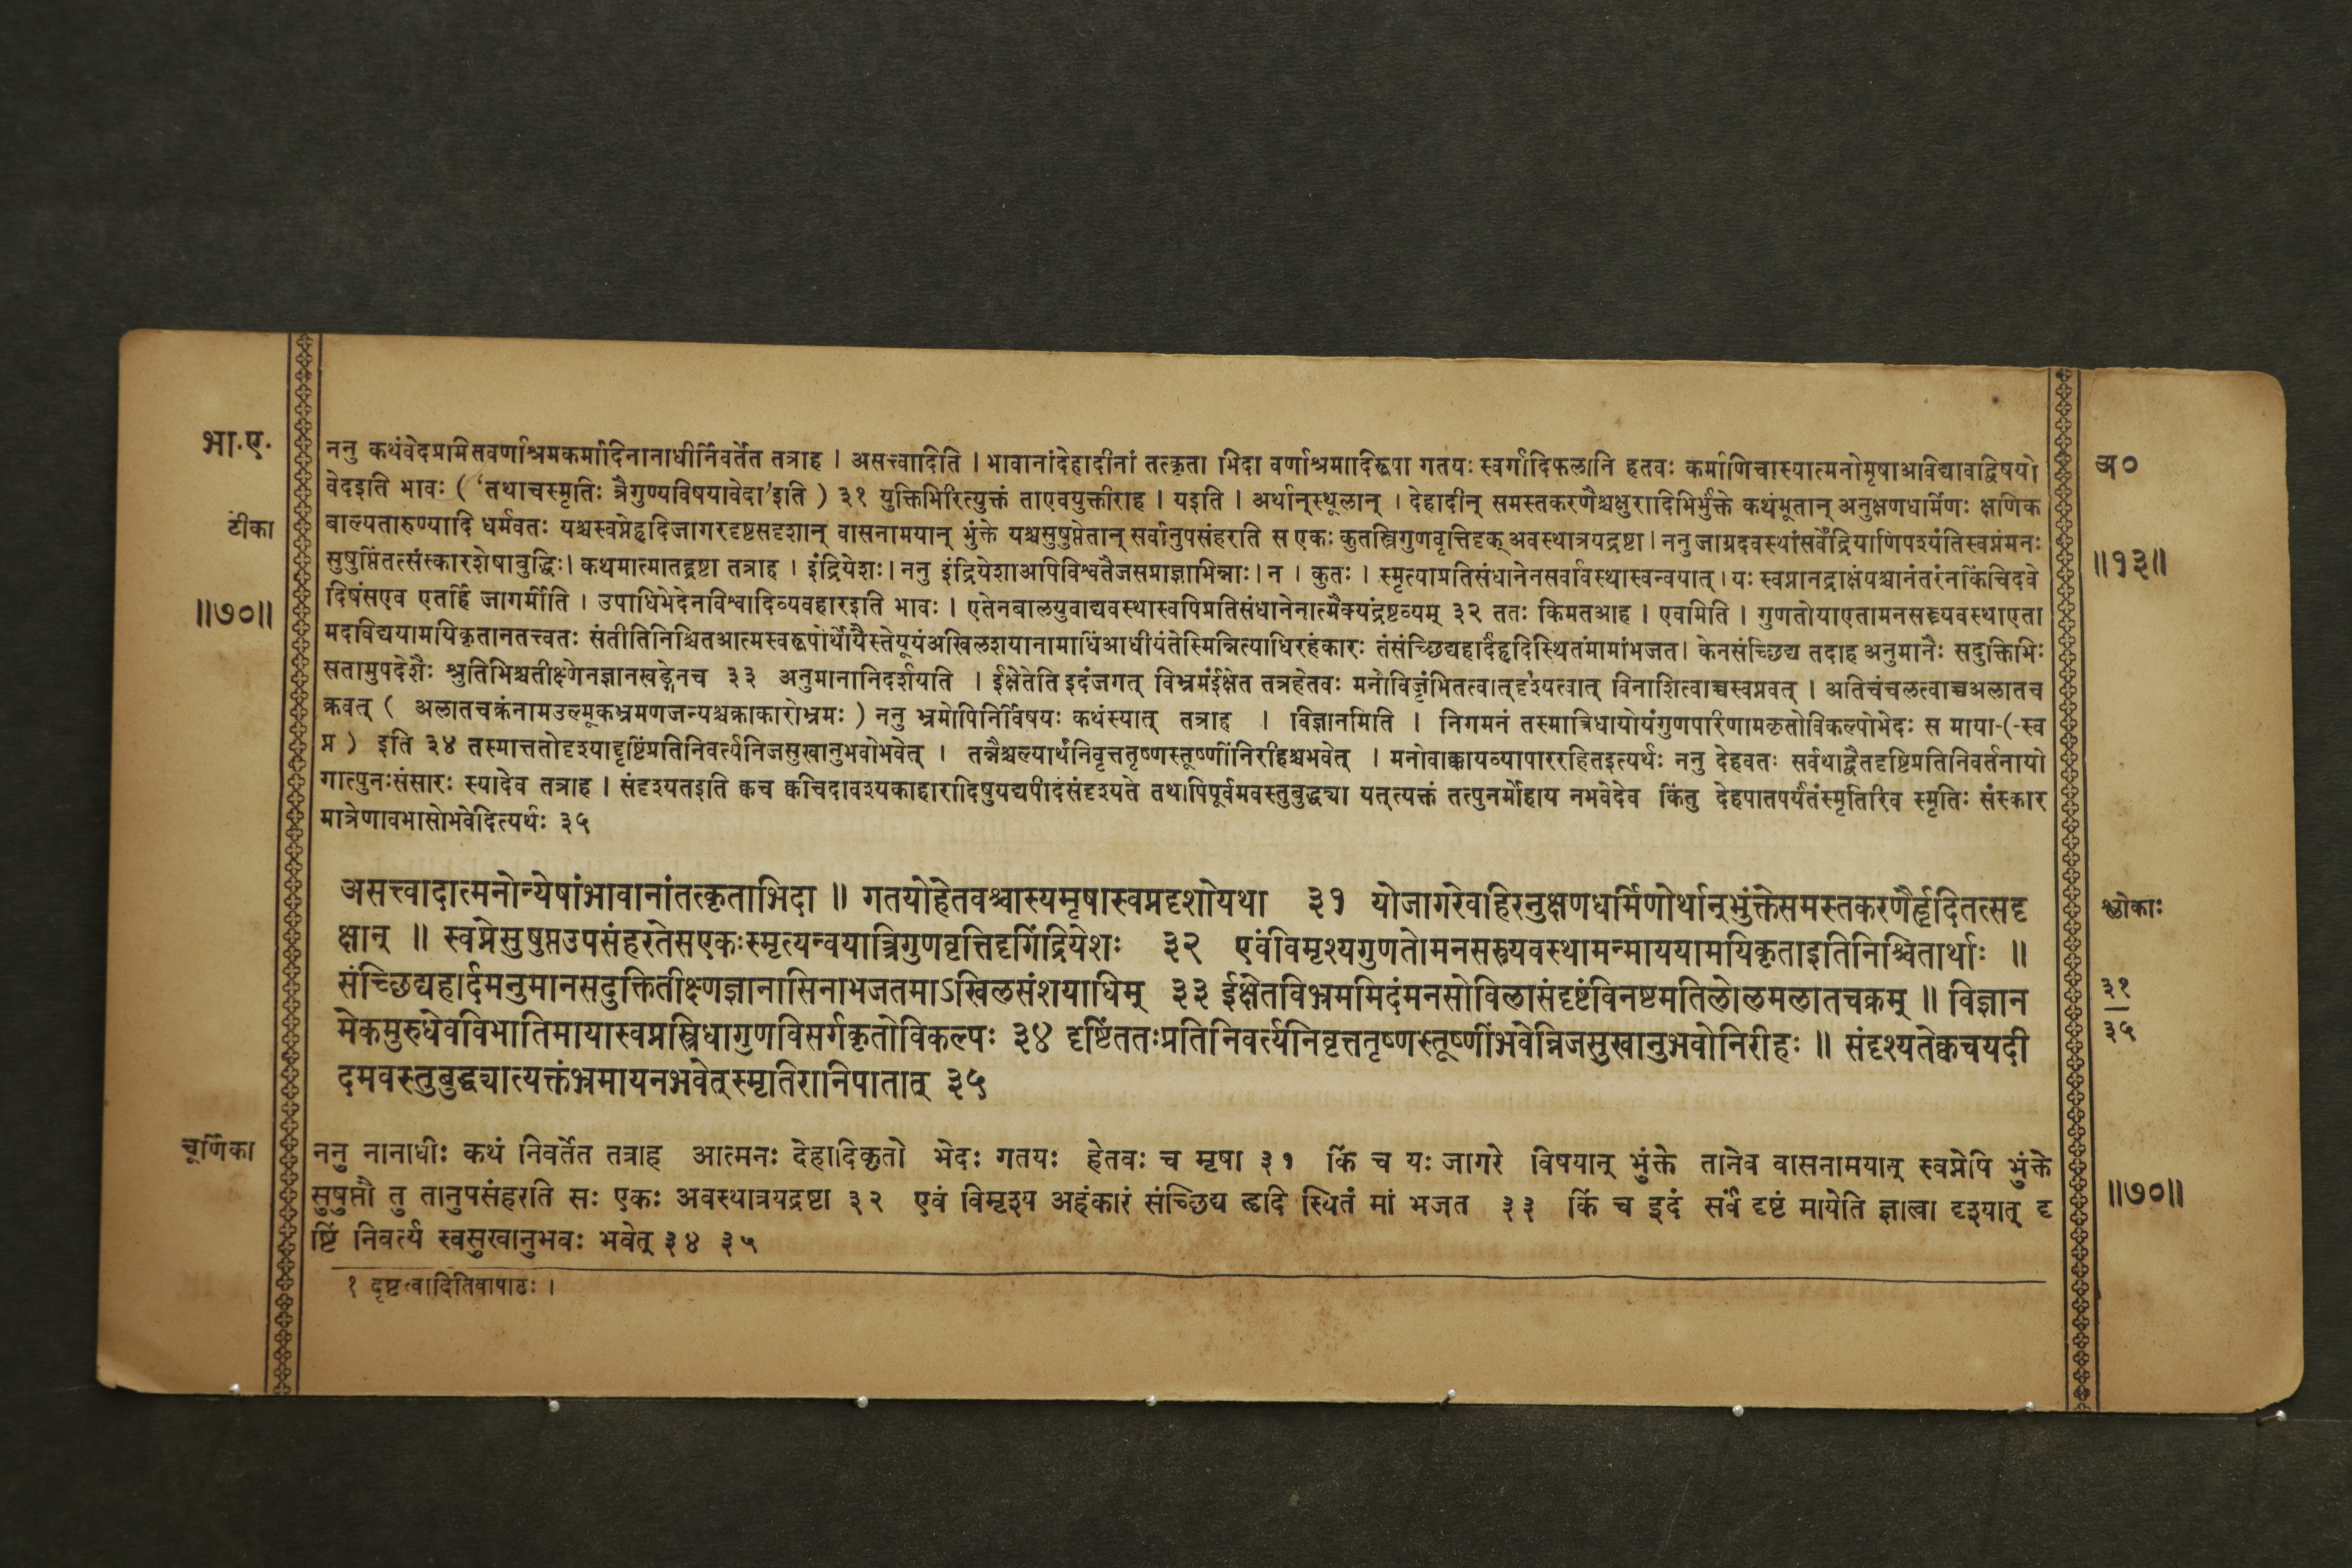 भा.ए.
टीका
॥७०॥
ननु कथंवेदप्रमितवर्णाश्रमकर्मादिनानाधीर्निवर्तेत तत्राह । असत्त्वादिति । भावानांदेहादीनां तत्कृता भिदा वर्णाश्रमादिरूपा गतयः स्वर्गादिफलानि हेतवः कर्माणिचास्यात्मनोमृषाअविद्यावद्विषयो
वेदइति भावः ( 'तथाचस्मृतिः त्रैगुण्यविषयावेदा'इति ) ३१ युक्तिभिरित्युक्तं ताएवयुक्तीराह । यइति । अर्थान्स्थूलान् । देहादीन् समस्तकरणैश्चक्षुरादिभिर्भुंक्ते कथंभूतान् अनुक्षणधर्मिणः क्षणिक
बाल्यतारुण्यादि धर्मवतः यश्चस्वप्नेहृदिजागरदृष्टसदृशान् वासनामयान् भुंक्ते यश्चसुषुप्तेतान् सर्वानुपसंहरति स एकः कुतस्त्रिगुणवृत्तिदृक् अवस्थात्रयद्रष्टा । ननु जाग्रदवस्थांसर्वेंद्रियाणिपश्यंतिस्वप्नंमनः
सुषुप्तिंतत्संस्कारशेषाबुद्धिः। कथमात्मातद्द्रष्टा तत्राह । इंद्रियेशः। ननु इंद्रियेशाअपिविश्वतैजसप्राज्ञाभिन्नाः। न । कुतः । स्मृत्याप्रतिसंधानेनसर्वावस्थास्वन्वयात्। यः स्वप्नानद्राक्षंयश्चानंतरंनकिंचिदवे
दिषंसएव एतर्हि जागर्मीति । उपाधिभेदेनविश्वादिव्यवहारइति भावः । एतेनबालयुवाद्यवस्थास्वपिप्रतिसंधानेनात्मैक्यंद्रष्टव्यम् ३२ ततः किमतआह । एवमिति । गुणतोयाएतामनसस्त्र्यवस्थाएता
मदाविद्ययामयिकृतानतत्त्वतः संतीतिनिश्चितआत्मस्वरूपोर्थोयैस्तेयूयंअखिलशयानामाधिंआधीयंतेस्मिन्नित्याधिरहंकारः तंसंच्छिद्यहार्दंहृदिस्थितंमामांभजत। केनसंच्छिद्य तदाह अनुमानैः सदुक्तिभिः
सतामुपदेशैः श्रुतिभिश्चतीक्ष्णेनज्ञानखड्गेनच ३३ अनुमानानिदर्शयति । ईक्षेतेति इदंजगत् विभ्रमंईक्षेत तत्रहेतवः मनोविजृंभितत्वात्दृश्यत्वात् विनाशित्वाच्चस्वप्नवत् । अतिचंचलत्वाच्चअलातच
क्रवत् ( अलातचक्रंनामउल्मूकभ्रमणजन्यश्चक्राकारोभ्रमः ) ननु भ्रमोपिनिर्विषयः कथंस्यात् तत्राह । विज्ञानमिति । निगमनं तस्मात्रिधायोयंगुणपरिणामकृतोविकल्पोभेदः स माया-(-स्व
प्न ) इति ३४ तस्मात्ततोदृश्यादृष्टिंप्रतिनिवर्त्यनिजसुखानुभवोभवेत् । तन्नैश्चल्यार्थंनिवृत्ततृष्णस्तूष्णींनिरीहश्चभवेत् । मनोवाक्कायव्यापाररहितइत्यर्थः ननु देहवतः सर्वथाद्वैतदृष्टिप्रतिनिवर्तनायो
गात्पुनःसंसारः स्यादेव तत्राह । संदृश्यतइति क्वच क्वचिदावश्यकाहारादिषुयद्यपीदंसंदृश्यते तथापिपूर्वमवस्तुबुद्ध्या यत्त्यक्तं तत्पुनर्मोहाय नभवेदेव किंतु देहपातपर्यंतंस्मृतिरिव स्मृतिः संस्कार
मात्रेणावभासोभवेदित्यर्थः ३५
असत्त्वादात्मनोन्येषांभावानांतत्कृताभिदा ॥ गतयोहेतवश्चास्यमृषास्वप्नदृशोयथा ३१ योजागरेबहिरनुक्षणधर्मिणोर्थान्भुंक्तेसमस्तकरणैर्हृदितत्सदृ
क्षान् ॥ स्वप्नेसुषुप्तउपसंहरतेसएकःस्मृत्यन्वयात्रिगुणवृत्तिदृगिंद्रियेशः ३२ एवंविमृश्यगुणतोमनसस्त्र्यवस्थामन्माययामयिकृताइतिनिश्चितार्थाः ॥
संच्छिद्यहार्दमनुमानसदुक्तितीक्ष्णज्ञानासिनाभजतमाऽखिलसंशयाधिम् ३३ ईक्षेतविभ्रममिदंमनसोविलासंदृष्टंविनष्टमतिलोलमलातचक्रम् ॥ विज्ञान
मेकमुरुधेवविभातिमायास्वप्नस्त्रिधागुणविसर्गकृतोविकल्पः ३४ दृष्टिंततःप्रतिनिवर्त्यनिवृत्ततृष्णस्तूष्णींभवेन्निजसुखानुभवोनिरीहः ॥ संदृश्यतेक्वचयदी
दमवस्तुबुद्ध्यात्यक्तंभ्रमायनभवेत्स्मृतिरानिपातात् ३५
चूर्णिका
ननु नानाधीः कथं निवर्तेत तत्राह आत्मनः देहादिकृतो भेदः गतयः हेतवः च मृषा ३१ किं च यः जागरे विषयान् भुंक्ते तानेव वासनामयान् स्वप्नेपि भुंक्ते
सुषुप्तौ तु तानुपसंहरति सः एकः अवस्थात्रयद्रष्टा ३२ एवं विमृश्य अहंकारं संच्छिद्य हृदि स्थितं मां भजत ३३ किं च इदं सर्वं दृष्टं मायेति ज्ञात्वा दृश्यात् दृ
ष्टिं निवर्त्य स्वसुखानुभवः भवेत् ३४ ३५
१ दृष्टत्वादितिवापाठः ।
अ०
॥१३॥
श्लोकाः
३१
३५
॥७०॥